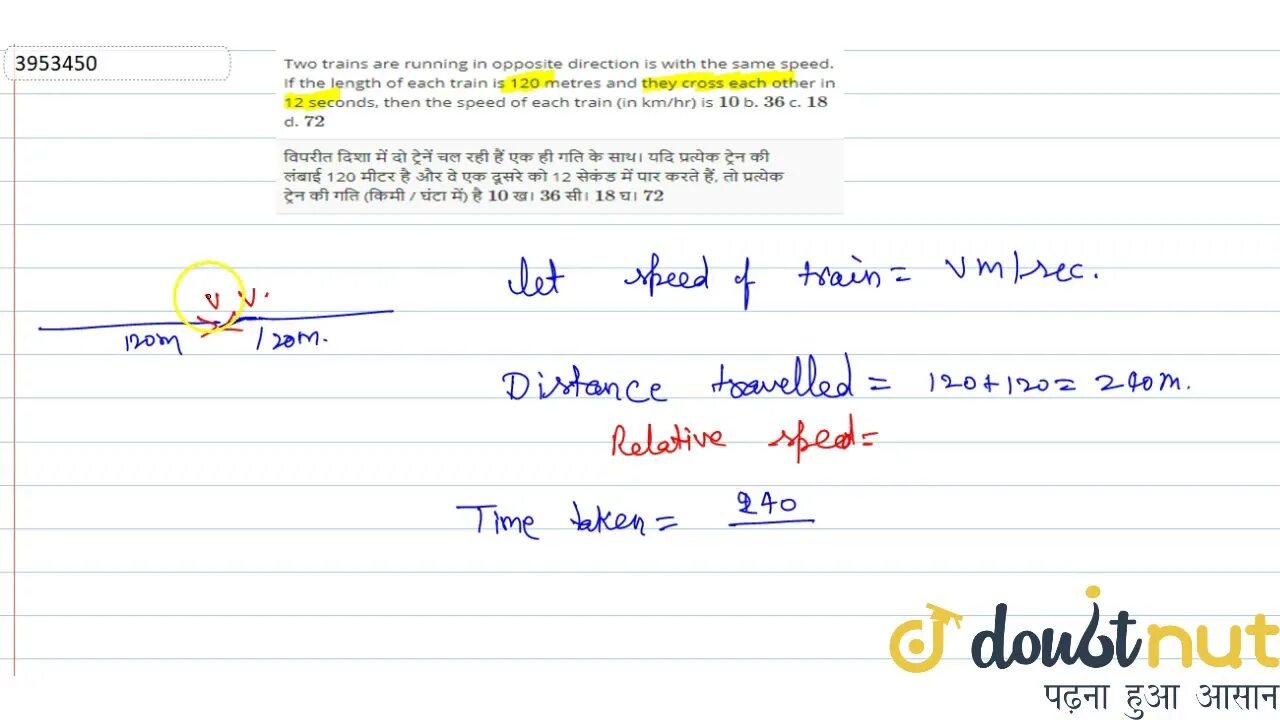 3953450
Two trains are running in opposite direction is with the same speed.
If the length of each train is 120 metres and they cross each other in
12 seconds, then the speed of each train (in km/hr) is 10 b. 36 c. 18
d. 72
विपरीत दिशा में दो ट्रेनें चल रही हैं एक ही गति के साथ। यदि प्रत्येक ट्रेन की
लंबाई 120 मीटर है और वे एक दूसरे को 12 सेकंड में पार करते हैं, तो प्रत्येक
ट्रेन की गति (किमी / घंटा में) है 10 ख। 36 सी। 18 घ। 72
let speed of train = v m/sec.
v v.
120m 120m.
Distance travelled = 120+120 = 240m.
Relative speed=
Time taken = 240
doubtnut
पढ़ना हुआ आसान